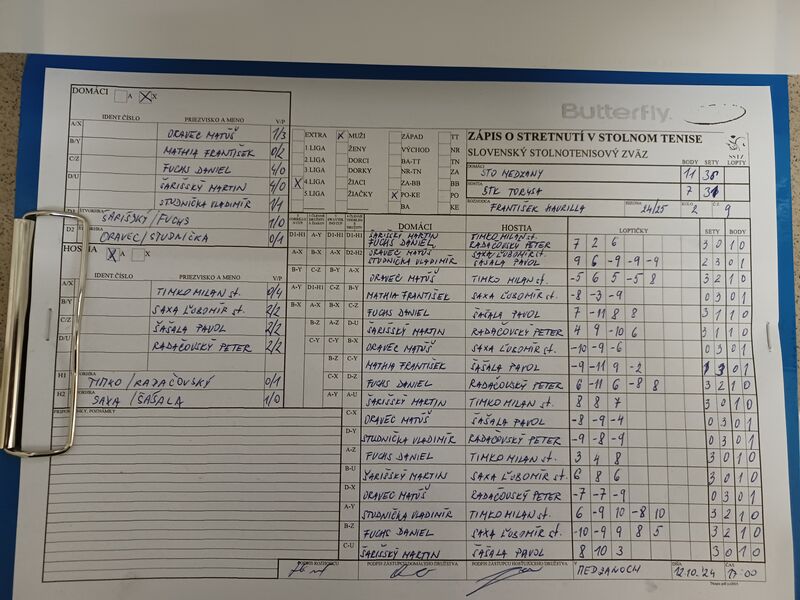 DOMÁCI A X
Butterfly
IDENT ČÍSLO PRIEZVISKO A MENO V/P
A/X ORAVEC MATÚŠ 1/3
B/Y MATHIA FRANTIŠEK 0/2
C/Z FUCHS DANIEL 4/0
D/U ŠARIŠSKÝ MARTIN 4/0
STUDNIČKA VLADIMÍR 1/1
D1 ŠARIŠSKÝ/FUCHS 1/0
D2 ORAVEC/STUDNIČKA 0/1
HOSTIA A X
IDENT ČÍSLO PRIEZVISKO A MENO V/P
A/X TIMKO MILAN st. 0/4
B/Y SAXA ĽUBOMÍR st. 2/2
C/Z ŠAŠALA PAVOL 2/2
D/U RADAČOVSKÝ PETER 2/2
H1 TIMKO/RADAČOVSKÝ 0/1
H2 SAXA/ŠAŠALA 1/0
PRIPOMIENKY, POZNÁMKY
EXTRA X MUŽI ZÁPAD TT
1 LIGA ŽENY VÝCHOD NR
2 LIGA DORCI BA-TT TN
3 LIGA DORKY NR-TN ZA
X 4 LIGA ŽIACI ZA-BB BB
5 LIGA ŽIAČKY X PO-KE PO
BA KE
ZÁPIS O STRETNUTÍ V STOLNOM TENISE
SLOVENSKÝ STOLNOTENISOVÝ ZVÄZ
SSTZ
BODY SETY LOPTY
DOMÁCI STO MEDZANY 11
HOSTIA ŠTK TORYSA 7
ROZHODCA FRANTIŠEK HAVRILLA SEZÓNA 24/25 KOLO 2 Č. 9
DOMÁCI HOSTIA LOPTIČKY SETY BODY
D1-H1 ŠARIŠSKÝ MARTIN TIMKO MILAN st.
FUCHS DANIEL RADAČOVSKÝ PETER 7 2 6 3 0 1 0
D2-H2 ORAVEC MATÚŠ SAXA ĽUBOMÍR st.
STUDNIČKA VLADIMÍR ŠAŠALA PAVOL 9 6 -9 -9 -9 2 3 0 1
ORAVEC MATÚŠ TIMKO MILAN st. -5 6 5 -5 8 3 2 1 0
MATHIA FRANTIŠEK SAXA ĽUBOMÍR st. -8 -3 -9 0 3 0 1
FUCHS DANIEL ŠAŠALA PAVOL 7 -11 8 8 3 1 1 0
ŠARIŠSKÝ MARTIN RADAČOVSKÝ PETER 4 9 -10 6 3 1 1 0
ORAVEC MATÚŠ SAXA ĽUBOMÍR st. -10 -9 -6 0 3 0 1
MATHIA FRANTIŠEK ŠAŠALA PAVOL -9 -11 9 -2 1 3 0 1
FUCHS DANIEL RADAČOVSKÝ PETER 6 -11 6 -8 8 3 2 1 0
A-U ŠARIŠSKÝ MARTIN TIMKO MILAN st. 8 8 7 3 0 1 0
C-X ORAVEC MATÚŠ ŠAŠALA PAVOL -8 -9 -4 0 3 0 1
D-Y STUDNIČKA VLADIMÍR RADAČOVSKÝ PETER -9 -8 -9 0 3 0 1
A-Z FUCHS DANIEL TIMKO MILAN st. 3 4 8 3 0 1 0
B-U ŠARIŠSKÝ MARTIN SAXA ĽUBOMÍR st. 6 8 6 3 0 1 0
D-X ORAVEC MATÚŠ RADAČOVSKÝ PETER -7 -7 -9 0 3 0 1
A-Y STUDNIČKA VLADIMÍR TIMKO MILAN st. 6 -9 10 -8 10 3 2 1 0
B-Z FUCHS DANIEL SAXA ĽUBOMÍR st. -10 -9 9 8 5 3 2 1 0
C-U ŠARIŠSKÝ MARTIN ŠAŠALA PAVOL 8 10 3 3 0 1 0
PODPIS ROZHODCU PODPIS ZÁSTUPCU DOMÁCEHO DRUŽSTVA PODPIS ZÁSTUPCU HOSŤUJÚCEHO DRUŽSTVA V MEDZANOCH DŇA 12.10.'24 ČAS 17:00